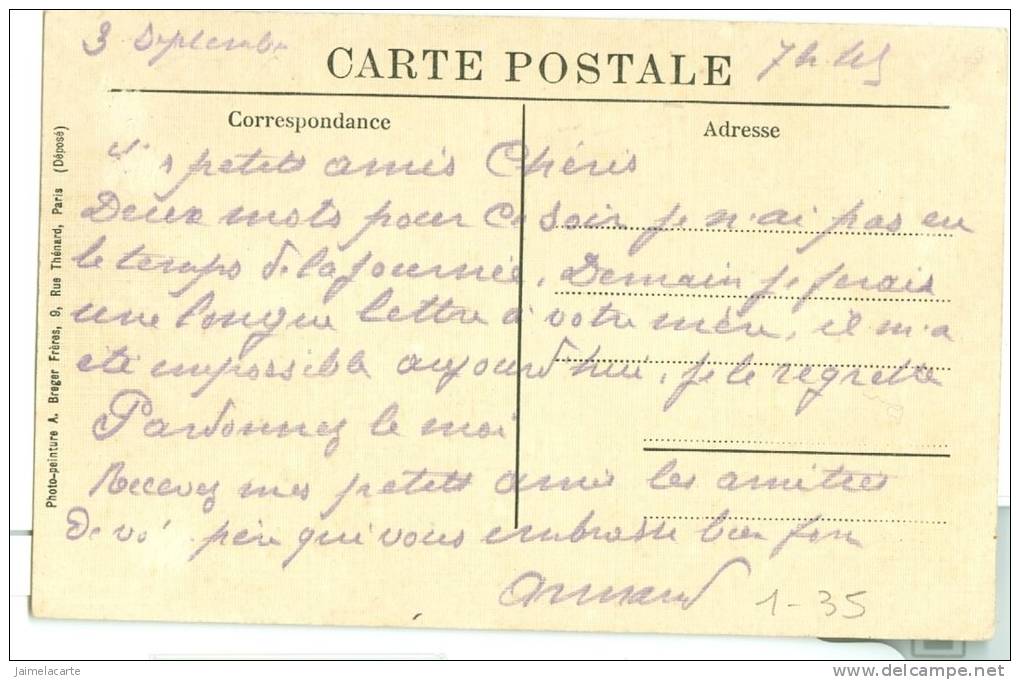 3 Septembre 7h
CARTE POSTALE
Correspondance
Adresse
petits amis Chéris
Deux mots pour ce soir je n'ai pas eu
le temps de la journée. Demain je ferais
une longue lettre à votre mère, il m'a
été impossible aujourd'hui, je le regrette
Pardonnez le moi
Recevez mes petits amis les amitiés
De père qui vous embrasse bien fort
Armand
1-35
Photo-peinture A. Breger Frères, 9, Rue Thénard, Paris (Déposé)
Jaimelacarte
www.delcampe.net